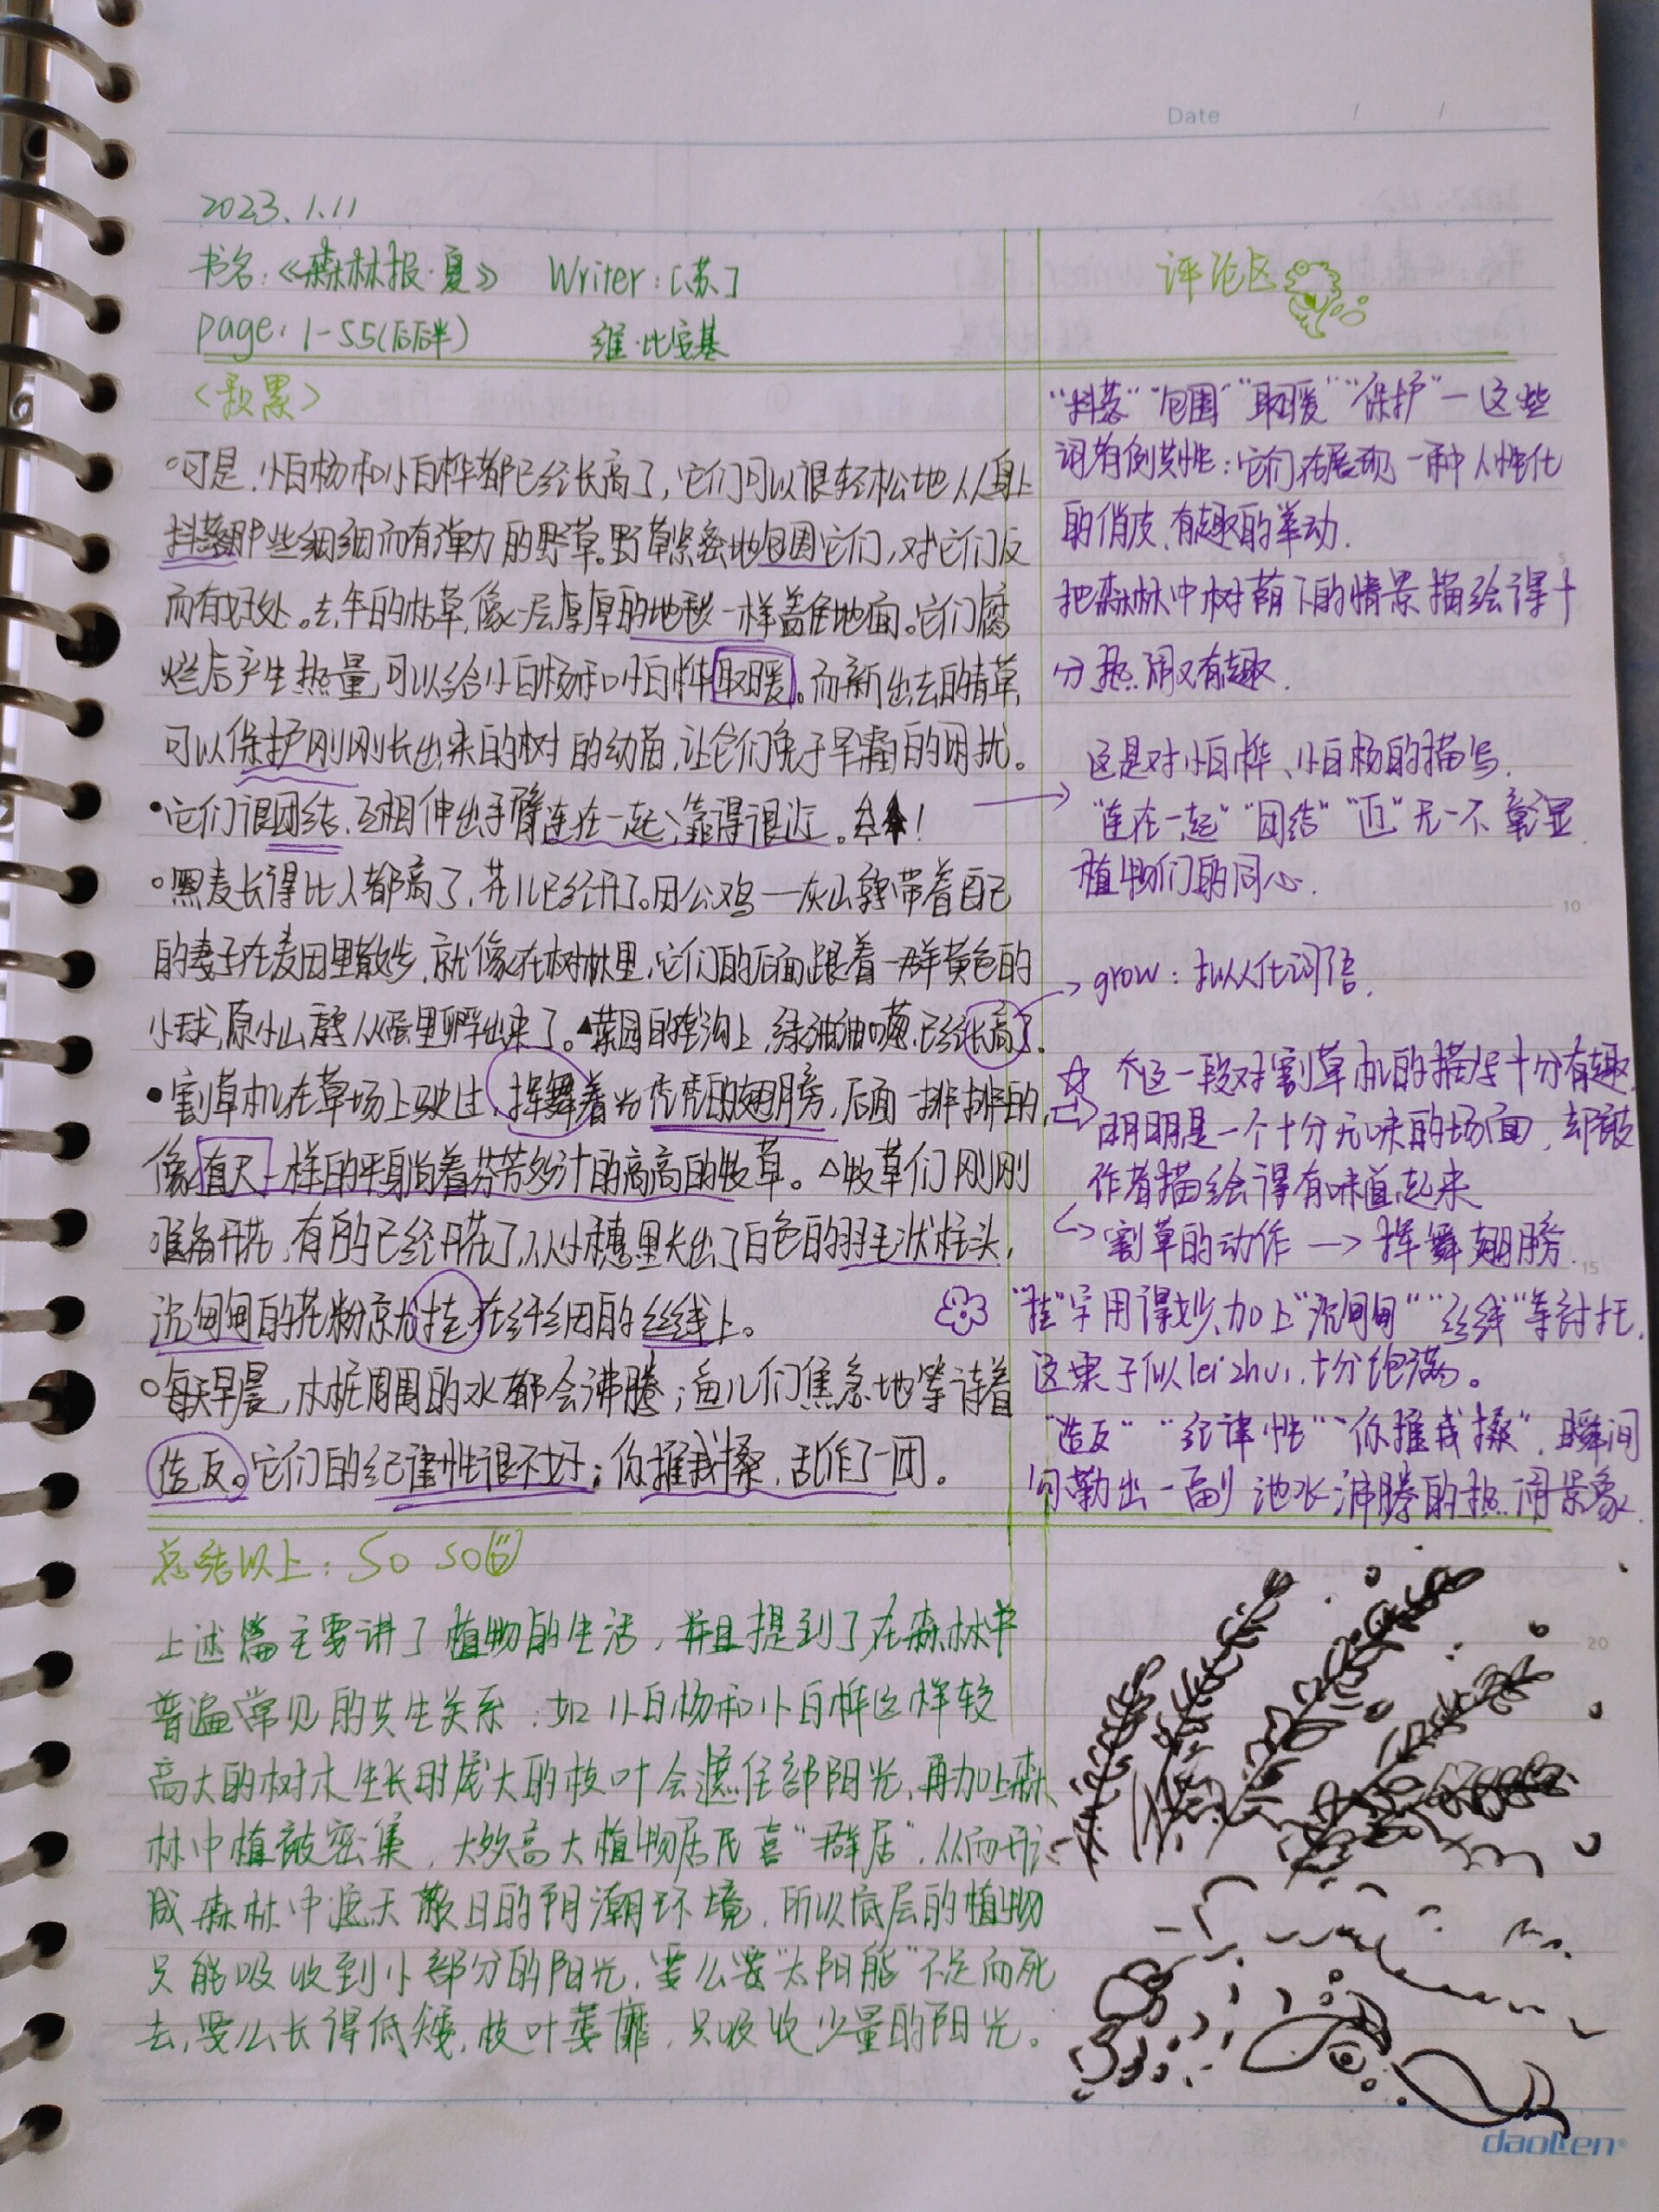 Date / /
2023.1.11
书名:《森林报·夏》 Writer:[苏]
page: 1-55(后半) 维·比安基
评论区
可是,小白杨和小白桦都已经长高了,它们可以很轻松地从身上
抖落那些细细而有弹力的野草。野草紧密地包围它们,对它们反
而有好处。去年的枯草,像一层厚厚的地毯一样盖住地面。它们腐
烂后产生热量,可以给小白杨和小白桦取暖。而新出去的青草,
可以保护刚刚长出来的树的幼苗,让它们免于早霜的困扰。
•它们很团结,互相伸出手臂连在一起,靠得很近。
○黑麦长得比人都高了,花儿已经开了。田公鸡—灰山鹑带着自己
的妻子在麦田里散步,就像在树林里,它们的后面跟着一群黄色的
小球,原小山鹑从蛋里孵出来了。▲菜园的垄沟上,绿油油 葱,已经长高了.
•割草机在草场上驶过,挥舞着 秃秃的翅膀,后面一排排的,
像直尺一样的平身尚着芬芳多汁的高高的牧草。△牧草们刚刚
准备开花,有的已经开花了,从小穗里长出了白色的羽毛状柱头,
沉甸甸的花粉 挂在纤细的丝线上。
○每天早晨,木桩周围的水都会沸腾;鱼儿们焦急地等待着
造反。它们的纪律性很不好;你推我搡,乱作了一团。
"抖落""包围""取暖""保护"—这些
词有 性:它们在展现一种人性化
的俏皮、有趣的举动.
把森林中树荫下的情景描绘得十
分热闹又有趣.
这是对小白桦、小白杨的描写.
"连在一起""团结""近"无一不彰显
植物们的同心.
grow: 拟人化词语.
☆ 这一段对割草机的描写十分有趣
明明是一个十分无味的场面,却被
作者描绘得有味道起来
割草的动作→挥舞翅膀.
"挂"字用得妙,加上"沉甸甸""丝线"等衬托,
这 子似lei zhui,十分饱满。
"造反""纪律性""你推我搡",瞬间
勾勒出一副池水沸腾的热闹景象.
总结以上: SO SO
上述篇主要讲了植物的生活,并且提到了在森林中
普遍常见的共生关系,如小白杨和小白桦这样较
高大的树木生长时庞大的枝叶会遮住部阳光,再加上森
林中植被密集,大致高大植物居民喜"群居",从而形
成森林中遮天蔽日的阴潮环境,所以底层的植物
只能吸收到小部分的阳光,要么要"太阳能"不足而死
去,要么长得低矮,枝叶萎靡,只吸收少量的阳光。
5
10
15
20
daolen